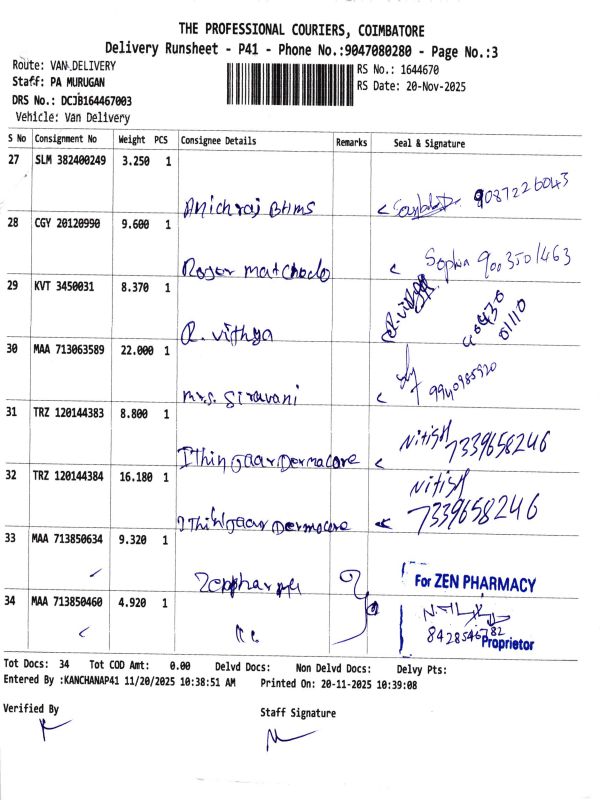 THE PROFESSIONAL COURIERS, COIMBATORE
Delivery Runsheet - P41 - Phone No.:9047080280 - Page No.:3
Route: VAN DELIVERY
RS No.: 1644670
Staff: PA MURUGAN
RS Date: 20-Nov-2025
DRS No.: DCJB164467003
Vehicle: Van Delivery
S No Consignment No Weight PCS Consignee Details Remarks Seal & Signature
27 SLM 382400249 3.250 1
Anichraj BHMS 9087226043
28 CGY 20120990 9.600 1
Roger matchado Sophia 9003501463
29 KVT 3450031 8.370 1
R. vithya R. vithya
30 MAA 713063589 22.000 1
mrs. Siravani 9940985920
31 TRZ 120144383 8.800 1
IThingaar Dermacare Nitish 7339658246
32 TRZ 120144384 16.180 1
IThingaar Dermacare Nitish 7339658246
33 MAA 713850634 9.320 1
For ZEN PHARMACY
34 MAA 713850460 4.920 1
8428546782
Proprietor
Tot Docs: 34 Tot COD Amt: 0.00 Delvd Docs: Non Delvd Docs: Delvy Pts:
Entered By :KANCHANAP41 11/20/2025 10:38:51 AM Printed On: 20-11-2025 10:39:08
Verified By
Staff Signature